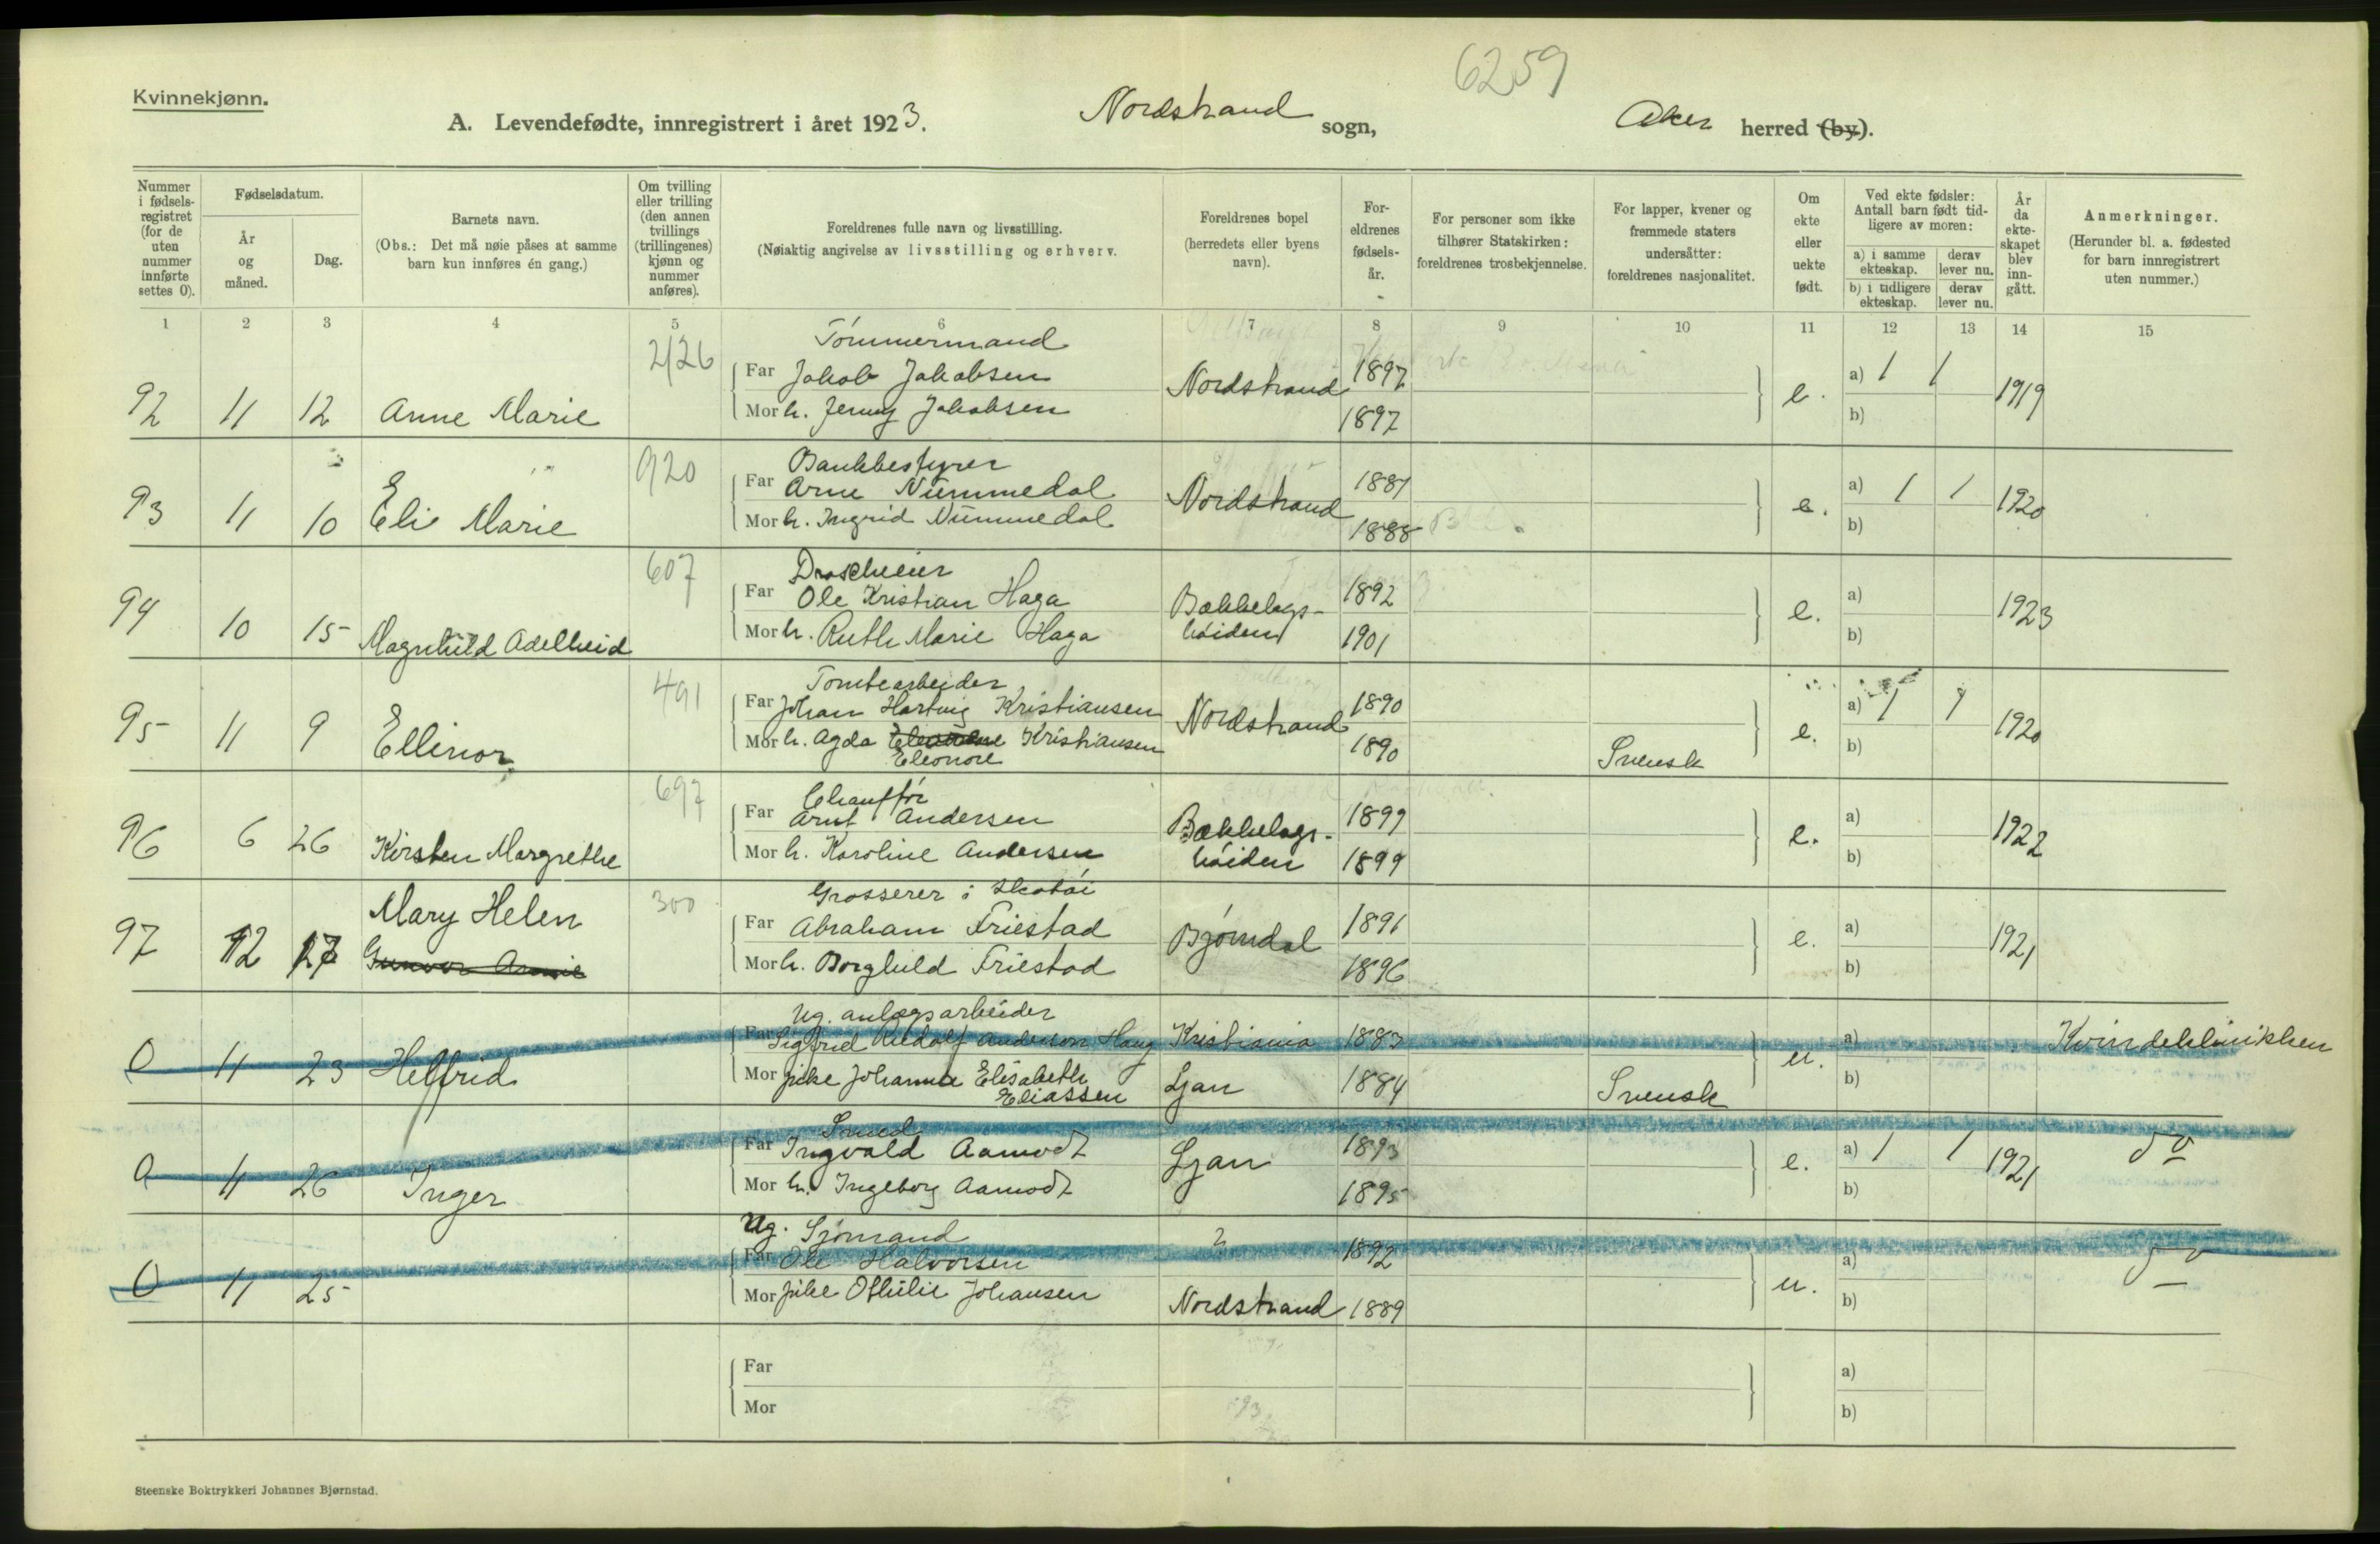 6259
Kvinnekjønn.
A. Levendefødte, innregistrert i året 1923. Nordstrand sogn, Aker herred (by).
Nummer i fødselsregistret (for de uten nummer innførte settes 0).
Fødselsdatum.
År og måned.
Dag.
Barnets navn.
(Obs.: Det må nøie påses at samme barn kun innføres én gang.)
Om tvilling eller trilling (den annen tvillings (trillingenes) kjønn og nummer anføres).
Foreldrenes fulle navn og livsstilling.
(Nøiaktig angivelse av livsstilling og erhverv.
Foreldrenes bopel (herredets eller byens navn).
Foreldrenes fødselsår.
For personer som ikke tilhører Statskirken: foreldrenes trosbekjennelse.
For lapper, kvener og fremmede staters undersåtter: foreldrenes nasjonalitet.
Om ekte eller uekte født.
Ved ekte fødsler: Antall barn født tidligere av moren:
a) i samme ekteskap. derav lever nu.
b) i tidligere ekteskap. derav lever nu.
År da ekteskapet blev inngått.
Anmerkninger.
(Herunder bl. a. fødested for barn innregistrert uten nummer.)
1 2 3 4 5 6 7 8 9 10 11 12 13 14 15
2/26 Tømmermand
Far Jakob Jakobsen 1897 a) 1 1
92 11 12 Anne Marie Nordstrand e. 1919
Mor h. Jenny Jakobsen 1897 b)
920 Bankbestyrer
Far Arne Nummedal 1881 a) 1 1
93 11 10 Eli Marie Nordstrand e. 1920
Mor h. Ingrid Nummedal 1888 b)
607 Droscheeier
Far Ole Kristian Haga 1892 a)
94 10 15 Magnhild Adelheid Bækkelags-høiden e. 1923
Mor h. Ruth Marie Haga 1901 b)
491 Tomtearbeider
Far Johan Hartvig Kristiansen 1890 a) 1 1
95 11 9 Ellinor Nordstrand e. 1920
Mor h. Agda Kristiansen 1890 Svensk b)
Eleonore
697 Chauffør
Far Arnt Andersen 1899 a)
96 6 26 Kirsten Margrethe Bækkelags-høiden e. 1922
Mor h. Karoline Andersen 1899 b)
300 Grosserer i skotøi
Mary Helen
Far Abraham Friestad 1891 a)
97 12 17 Gunvor Bjørndal e. 1921
Mor h. Borghild Friestad 1896 b)
Ug. anlægsarbeider
Far Sigfrid Rudolf Anderson Haug Kristiania 1883 a) Kvindeklinikken
0 11 23 Helfrid u.
Mor pike Johanna Elisabeth Ljan 1884 Svensk b)
Eliassen
Smed
Far Ingvald Aamodt 1893 a) 1 1 do
0 11 26 Inger Ljan e. 1921
Mor h. Ingeborg Aamodt 1895 b)
Ug. Sjømand
Far Ole Halvorsen ? 1892 a) do
0 11 25 u.
Mor pike Othilie Johansen Nordstrand 1889 b)
Far a)
Mor b)
Steenske Boktrykkeri Johannes Bjørnstad.